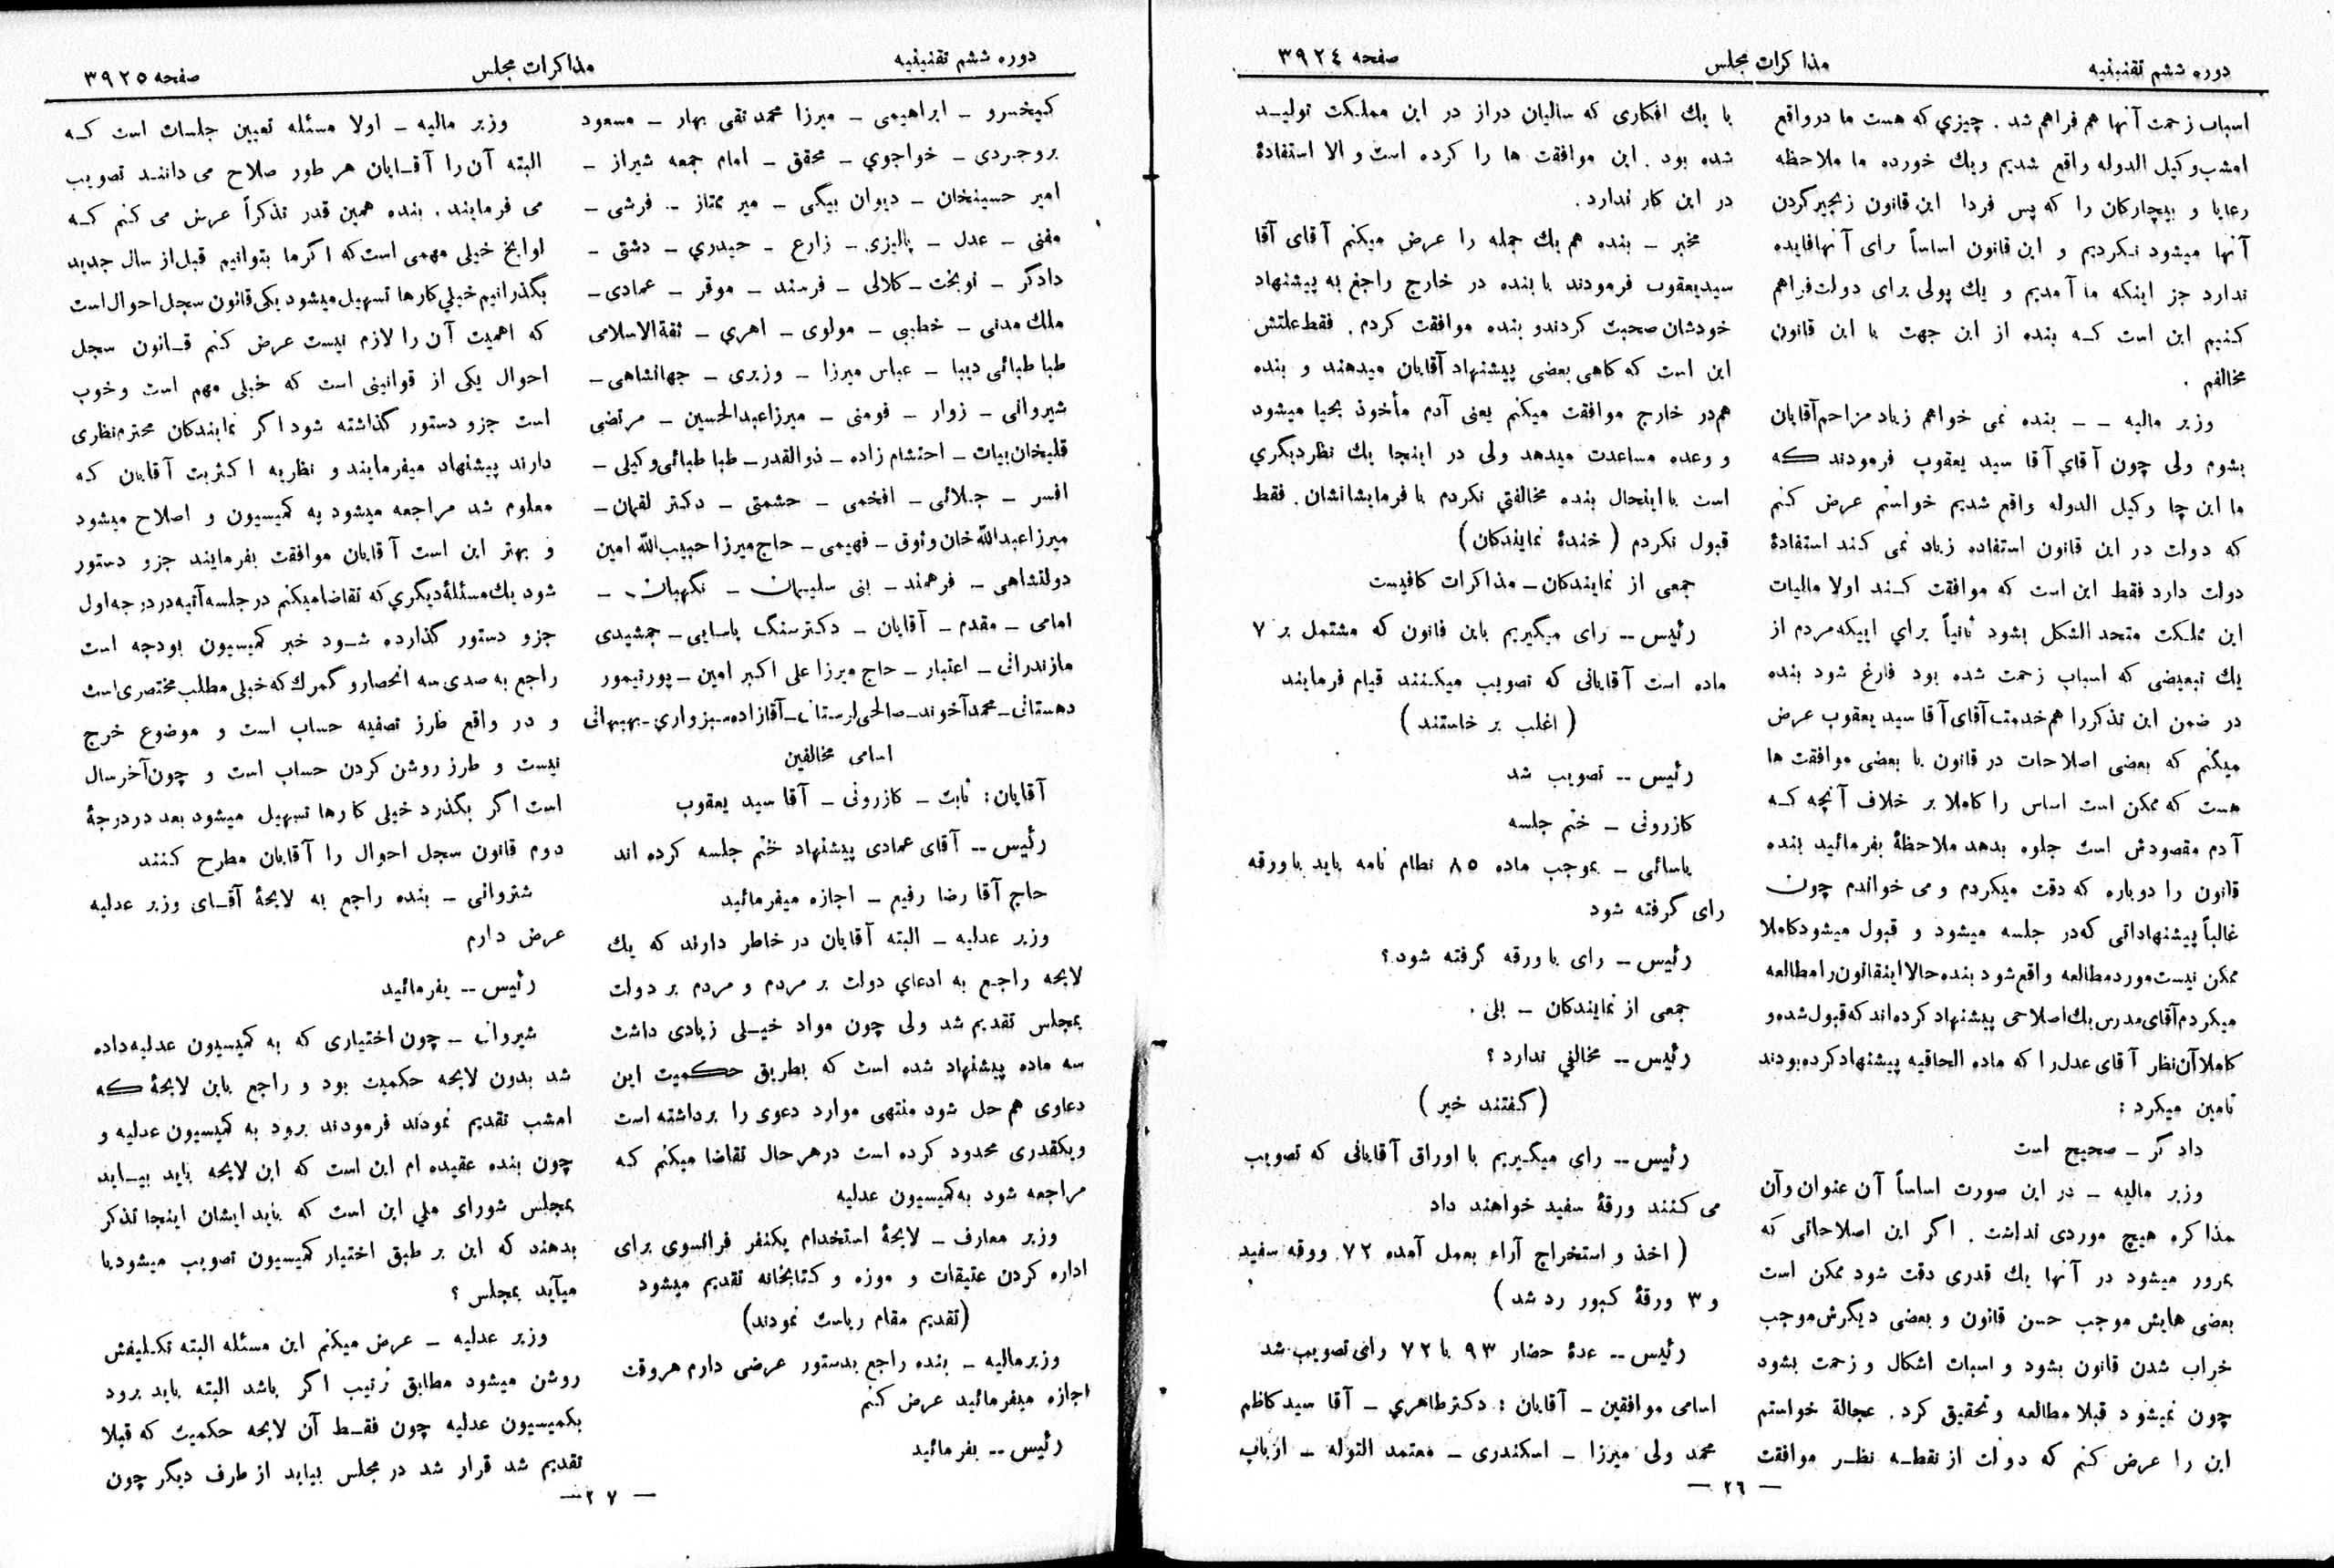 دوره ششم تقنینیه
مذاکرات مجلس
صفحه ۳۹۲٤
اسباب زحمت آنها هم فراهم شد . چیزي که هست ما درواقع
امشب وکیل الدوله واقع شدیم ویك خورده ما ملاحظه
رعایا و بیچارکان را که پس فردا این قانون زنجیر گردن
آنها میشود نکردیم و این قانون اساساً رای آنها فایده
ندارد جز اینکه ما آمدیم و یك پولی برای دولت فراهم
کنیم این است کـه بنده از این جهت با این قانون
مخالفم .
وزیر مالیه ــ بنده نمی خواهم زیاد مزاحم آقایان
بشوم ولی چون آقاي آقا سید یعقوب فرمودند که
ما این جا وکیل الدوله واقع شدیم خواستم عرض کنم
که دولت در این قانون استفاده زیاد نمی کند استفادهٔ
دولت دارد فقط این است که موافقت کـند اولا مالیات
این مملکت متحد الشکل بشود ثانیاً براي اییکه مردم از
یك تبعیضی که اسباب زحمت شده بود فارغ شود بنده
در ضمن این تذکر را هم خدمت آقای آقا سید یعقوب عرض
میکنم که بعضی اصلاحات در قانون یا بعضی موافقت ها
هست که ممکن است اساس را کاملا بر خلاف آنچه کـه
آدم مقصودش است جلوه بدهد ملاحظهٔ بفرمائید بنده
قانون را دوباره که دقت میکردم و می خواندم چون
غالباً پیشنهاداتی که در جلسه میشود و قبول میشود کاملا
ممکن نیست مورد مطالعه واقع شود بنده حالا اینقانون را مطالعه
میکردم آقای مدرس یك اصلاحی پیشنهاد کرده اند که قبول شده و
کاملا آن نظر آقای عدل را که ماده الحاقیه پیشنهاد کرده بودند
تامین میکرد :
داد گر ــ صحیح است
وزیر مالیه ــ در این صورت اساساً آن عنوان و آن
مذاکره هیچ موردی نداشت . اکر این اصلاحاتی که
بمرور میشود در آنها یك قدری دقت شود ممکن است
بعضی هایش موجب حسن قانون و بعضی دیگرش موجب
خراب شدن قانون بشود و اسبات اشکال و زحمت بشود
چون نمیشود قبلا مطالعه و تحقیق کرد . عجالة خواستم
این را عرض کنم که دولت از نقطـه نظـر موافقت
با یك افکاری که سالیان دراز در این مملکت تولیـد
شده بود . این موافقت ها را کرده است و الا استفادهٔ
در این کار ندارد .
مخبر ــ بنده هم یك جمله را عرض میکنم آقای آقا
سید یعقوب فرمودند با بنده در خارج راجع به پیشنهاد
خودشان صحبت کردند و بنده موافقت کردم . فقط علتش
این است که کاهی بعضی پیشنهاد آقایان میدهند و بنده
هم در خارج موافقت میکنم یعنی آدم مأخوذ بحیا میشود
و وعده مساعدت میدهد ولی در اینجا یك نظر دیگري
است با اینحال بنده مخالفتي نکردم با فرمایشانشان . فقط
قبول نکردم ( خندهٔ نمایندکان )
جمعی از نمایندکان ــ مذاکرات کافیست
رئیس ــ رای میگیریم باین قانون که مشتمل بر ۷
ماده است آقایانی که تصویب میکنند قیام فرمایند
( اغلب بر خاستند )
رئیس ــ تصویب شد
کازرونی ــ ختم جلسه
یاسائی ــ بموجب ماده ۸٥ نظام نامه باید با ورقه
رای گرفته شود
رئیس ــ رای با ورقه گرفته شود ؟
جمعی از نمایندکان ــ بلی .
رئیس ــ مخالفي ندارد ؟
( گفتند خیر )
رئیس ــ رای میگیریم با اوراق آقایانی که تصویب
می کنند ورقهٔ سفید خواهند داد
( اخذ و استخراج آراء بعمل آمده ۷۲ ووقه سفید
و ۳ ورقهٔ کبور رد شد )
رئیس ــ عدهٔ حضار ۹۳ با ۷۲ رای تصویب شد
اسامی موافقین ــ آقایان : دکتر طاهري ــ آقا سید کاظم
محمد ولی میرزا ــ اسکندری ــ معتمد التوله ــ ارباب
— ۲٦ —
دوره ششم تقنینیه
مذاکرات مجلس
صفحه ۳۹۲٥
کیخسرو ــ ابراهیمی ــ میرزا محمد تقی بهار ــ مسعود
بروجردی ــ خواجوي ــ محقق ــ امام جمعه شیراز ــ
امیر حسینخان ــ دیوان بیگی ــ میر ممتاز ــ فرشی ــ
مفتی ــ عدل ــ پالیزی ــ زارع ــ حیدري ــ دشتی ــ
دادگر ــ نوبخت ــ کلالی ــ فرمند ــ موقر ــ عمادی ــ
ملك مدنی ــ خطیبی ــ مولوی ــ اهري ــ ثقة الاسلامی
طباطبائی دیبا ــ عباس میرزا ــ وزیری ــ جهانشاهی ــ
شیروانی ــ زوار ــ فومنی ــ میرزا عبدالحسین ــ مرتضی
قلیخان بیات ــ احتشام زاده ــ ذوالقدر ــ طباطبائی وکیلی ــ
افسر ــ جلائی ــ افخمی ــ حشمتی ــ دکتر لقمان ــ
میرزا عبدالله خان وثوق ــ فهیمی ــ حاج میرزا حبیب الله امین
دولتشاهی ــ فرهمند ــ بنی سلیمان ــ نگهبان ــ
امامی ــ مقدم ــ آقایان ــ دکتر سنگ یاسایی ــ جمشیدی
مازندرانی ــ اعتبار ــ حاج میرزا علی اکبر امین ــ پورتیمور
دهستانی ــ محمد آخوند ــ صالحی لرستان ــ آقازاده سبزواري ــ بهبهانی
اسامی مخالفین
آقایان : ثابت ــ کازرونی ــ آقا سید یعقوب
رئیس ــ آقای عمادی پیشنهاد ختم جلسه کرده اند
حاج آقا رضا رفیع ــ اجازه میفرمائید
وزیر عدلیه ــ البته آقایان در خاطر دارند که یك
لایحه راجع به ادعاي دولت بر مردم و مردم بر دولت
بمجلس تقدیم شد ولی چون مواد خیـلی زیادی داشت
سه ماده پیشنهاد شده است که بطریق حکمیت این
دعاوی هم حل شود منتهی موارد دعوی را برداشته است
ویکقدری محدود کرده است در هر حال تقاضا میکنم که
مراجعه شود به کمیسیون عدلیه
وزیر معارف ــ لایحهٔ استخدام یکنفر فرانسوی برای
اداره کردن عتیقات و موزه و کتابخانه تقدیم میشود
(تقدیم مقام ریاست نمودند)
وزیر مالیه ــ بنده راجع بدستور عرضی دارم هر وقت
اجازه میفرمائید عرض کنم
رئیس ــ بفرمائید
وزیر مالیه ــ اولا مسئله تعیین جلسات است کـه
البته آن را آقـایان هر طور صلاح می داننـد تصویب
می فرمایند . بنده همین قدر تذکراً عرض می کنم کـه
لوایح خیلی مهمی است که اگر ما بتوانیم قبل از سال جدید
بگذرانیم خیلي کارها تسهیل میشود یکی قانون سجل احوال است
که اهمیت آن را لازم نیست عرض کنم قـانون سجل
احوال یکی از قوانینی است که خیلی مهم است و خوب
است جزو دستور گذاشته شود اکر نمایندکان محترم نظری
دارند پیشنهاد میفرمایند و نظر به اکثریت آقایان که
معلوم شد مراجعه میشود به کمیسیون و اصلاح میشود
و بهتر این است آقایان موافقت بفرمایند جزو دستور
شود یك مسئلهٔ دیگري که تقاضا میکنم در جلسه آتیه در درجه اول
جزو دستور گذارده شـود خبر کمیسیون بودجه است
راجع به صدی سه انحصار و گمرك که خیلی مطلب مختصری است
و در واقع طرز تصفیه حساب است و موضوع خرج
نیست و طرز روشن کردن حساب است و چون آخر سال
است اگر بگذرد خیلی کارها تسهیل میشود بعد در درجهٔ
دوم قانون سجل احوال را آقایان مطرح کنند
شیروانی ــ بنده راجع به لایحهٔ آقـای وزیر عدلیه
عرض دارم
رئیس ــ بفرمائید
شیروانی ــ چون اختیاری که به کمیسیون عدلیه داده
شد بدون لایحه حکمیت بود و راجع باین لایحهٔ که
امشب تقدیم نمودند فرمودند برود به کمیسیون عدلیه و
چون بنده عقیده ام این است که این لایحه باید بیـاید
بمجلس شورای ملي این است که باید ایشان اینجا تذکر
بدهند که این بر طبق اختیار کمیسیون تصویب میشود یا
میآید بمجلس ؟
وزیر عدلیه ــ عرض میکنم این مسئله البته تکلیفش
روشن میشود مطابق ترتیب اکر باشد البته باید برود
بکمیسیون عدلیه چون فقـط آن لایحه حکمیت که قبلا
تقدیم شد قرار شد در مجلس بیاید از طرف دیگر چون
— ۲۷ —